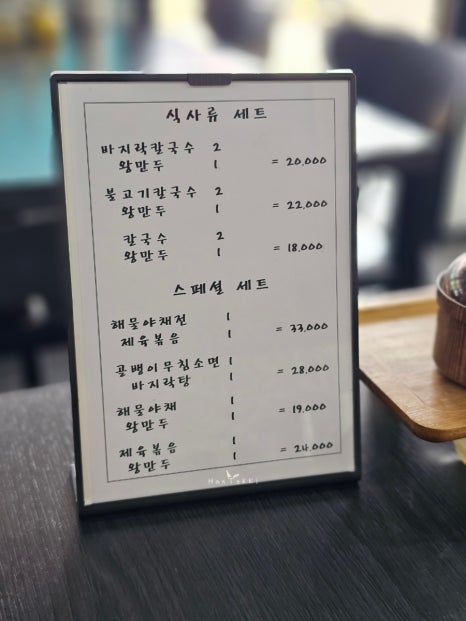 식사류 세트
바지락칼국수 2
왕만두 1 = 20,000
불고기칼국수 2
왕만두 1 = 22,000
칼국수 2
왕만두 1 = 18,000
스페셜 세트
해물야채전 1
제육볶음 1 = 33,000
골뱅이무침소면 1
바지락탕 1 = 28,000
해물야채 1
왕만두 1 = 19,000
제육볶음 1
왕만두 1 = 24,000